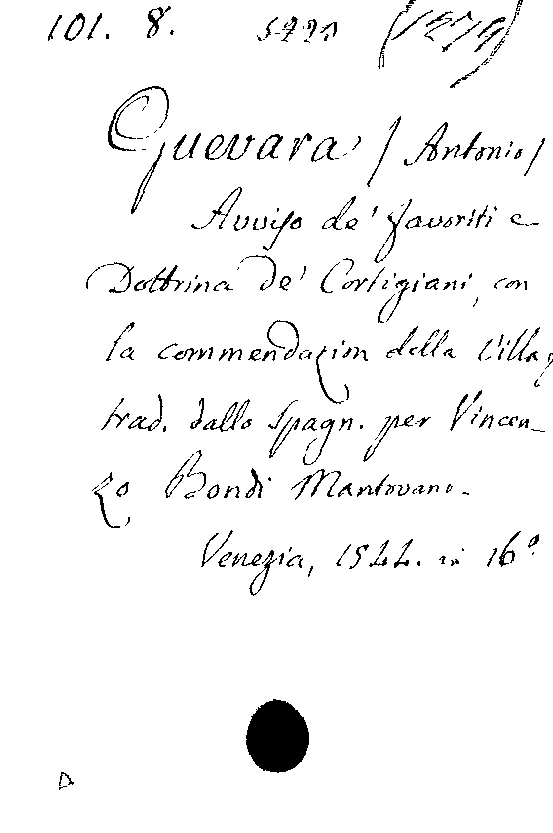 101. 8. 5220 (1279)
Guevara / Antonio /
Avviso de' favoriti e
Dottrina de' Cortigiani, con
la commendazion della Villa,
trad. dallo Spagn. per Vincen-
zo Bondi Mantovano.
Venezia, 1544. in 16°.
D